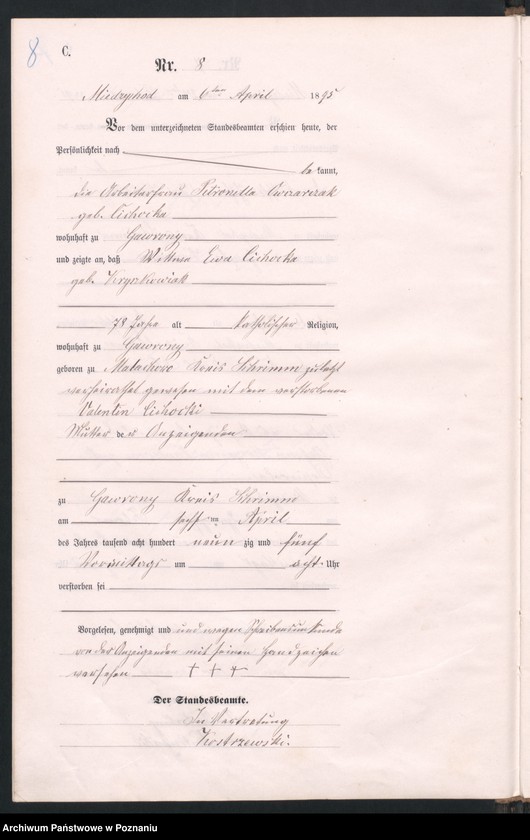 8
C.
Nr. 8
Miedzychod am 6ten April 1895
Vor dem unterzeichneten Standesbeamten erschien heute, der
Persönlichkeit nach
be kannt,
die Arbeiterfrau Petronella Owczarczak
geb. Cichocka
wohnhaft zu Gawrony
und zeigte an, daß Wittwe Ewa Cichocka
geb.
78 Jahre alt katholischer Religion,
wohnhaft zu Gawrony
geboren zu Malachowo Kreis Schrimm zuletzt
verheirathet gewesen mit dem verstorbenen
Valentin Cichocki
Mutter der Anzeigenden
zu Gawrony Kreis Schrimm
am sechsten April
des Jahres tausend acht hundert neun zig und fünf
Vormittags um acht Uhr
verstorben sei
Vorgelesen, genehmigt und und wegen Schreibensunkunde
von der Anzeigenden mit seinen Handzeichen
versehen + + +
Der Standesbeamte.
In Vertretung
Kostrzewski.
Archiwum Państwowe w Poznaniu